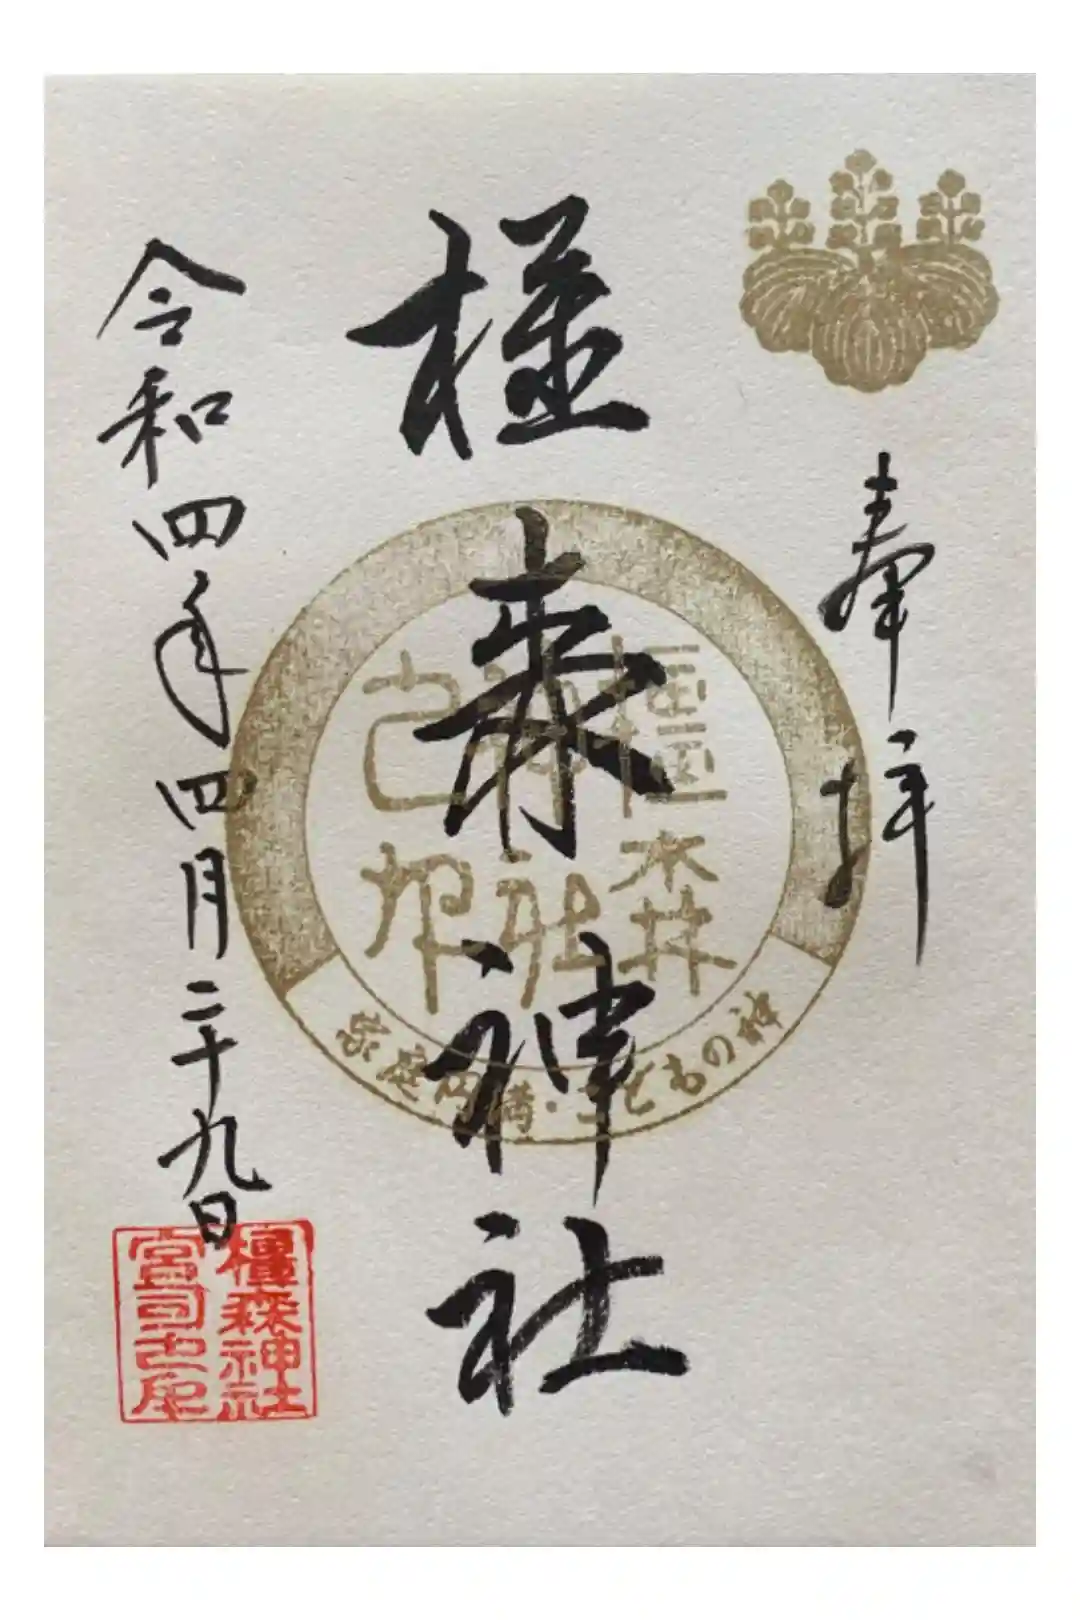 奉拝
橿森神社
橿森
神社
之印
家庭円満・こどもの神
令和四年四月二十九日
橿森神社
宮司之印